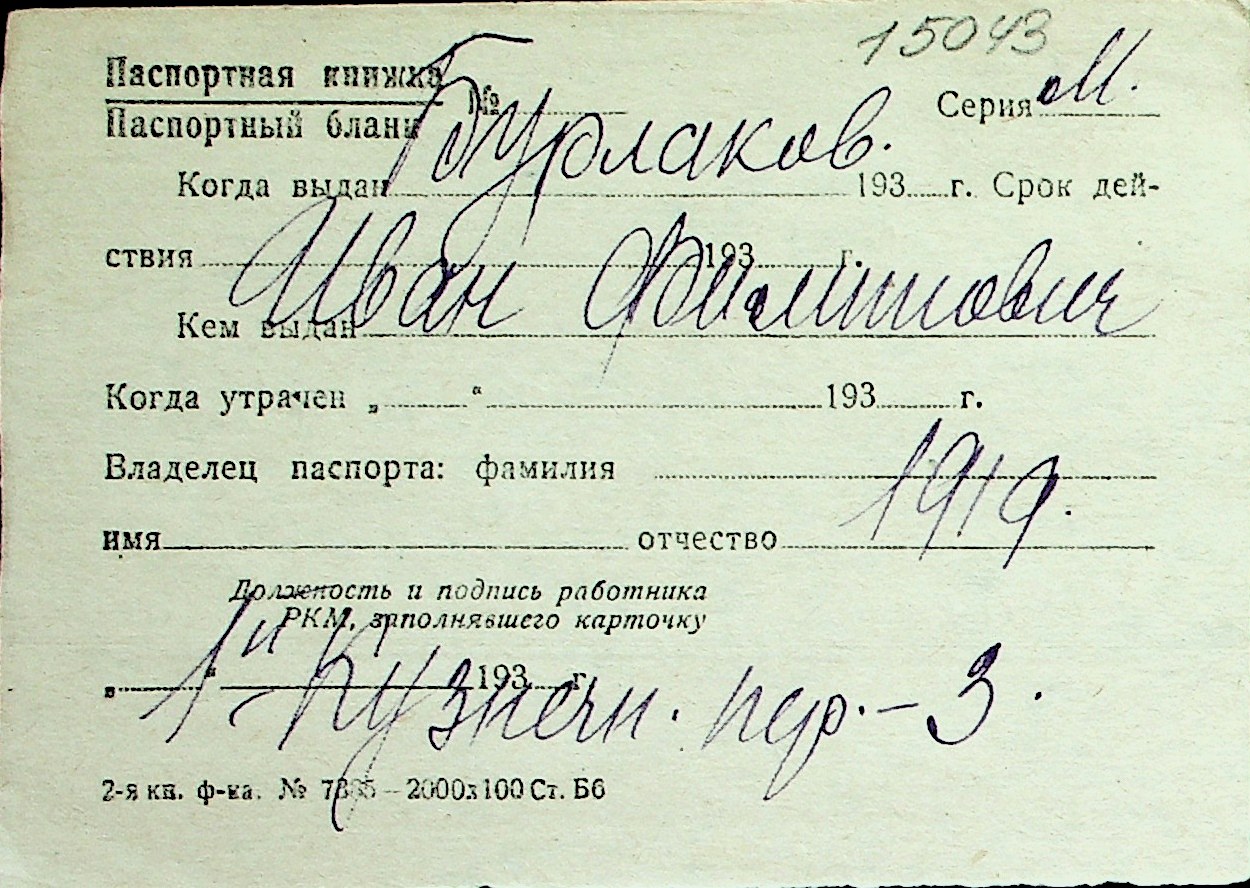 15043
Паспортная книжка
Паспортный бланк № Серия М.
Бурлаков.
Когда выдан 193 г. Срок дей-
ствия 193 г.
Иван
Кем выдан
Когда утрачен „ “ 193 г.
Владелец паспорта: фамилия
1919.
имя отчество
Должность и подпись работника
РКМ, заполнявшего карточку
„ “ 193 г.
1й Кузнечн. пер. – 3.
2-я кн. ф-ка. № 2000х100 Ст. Б6